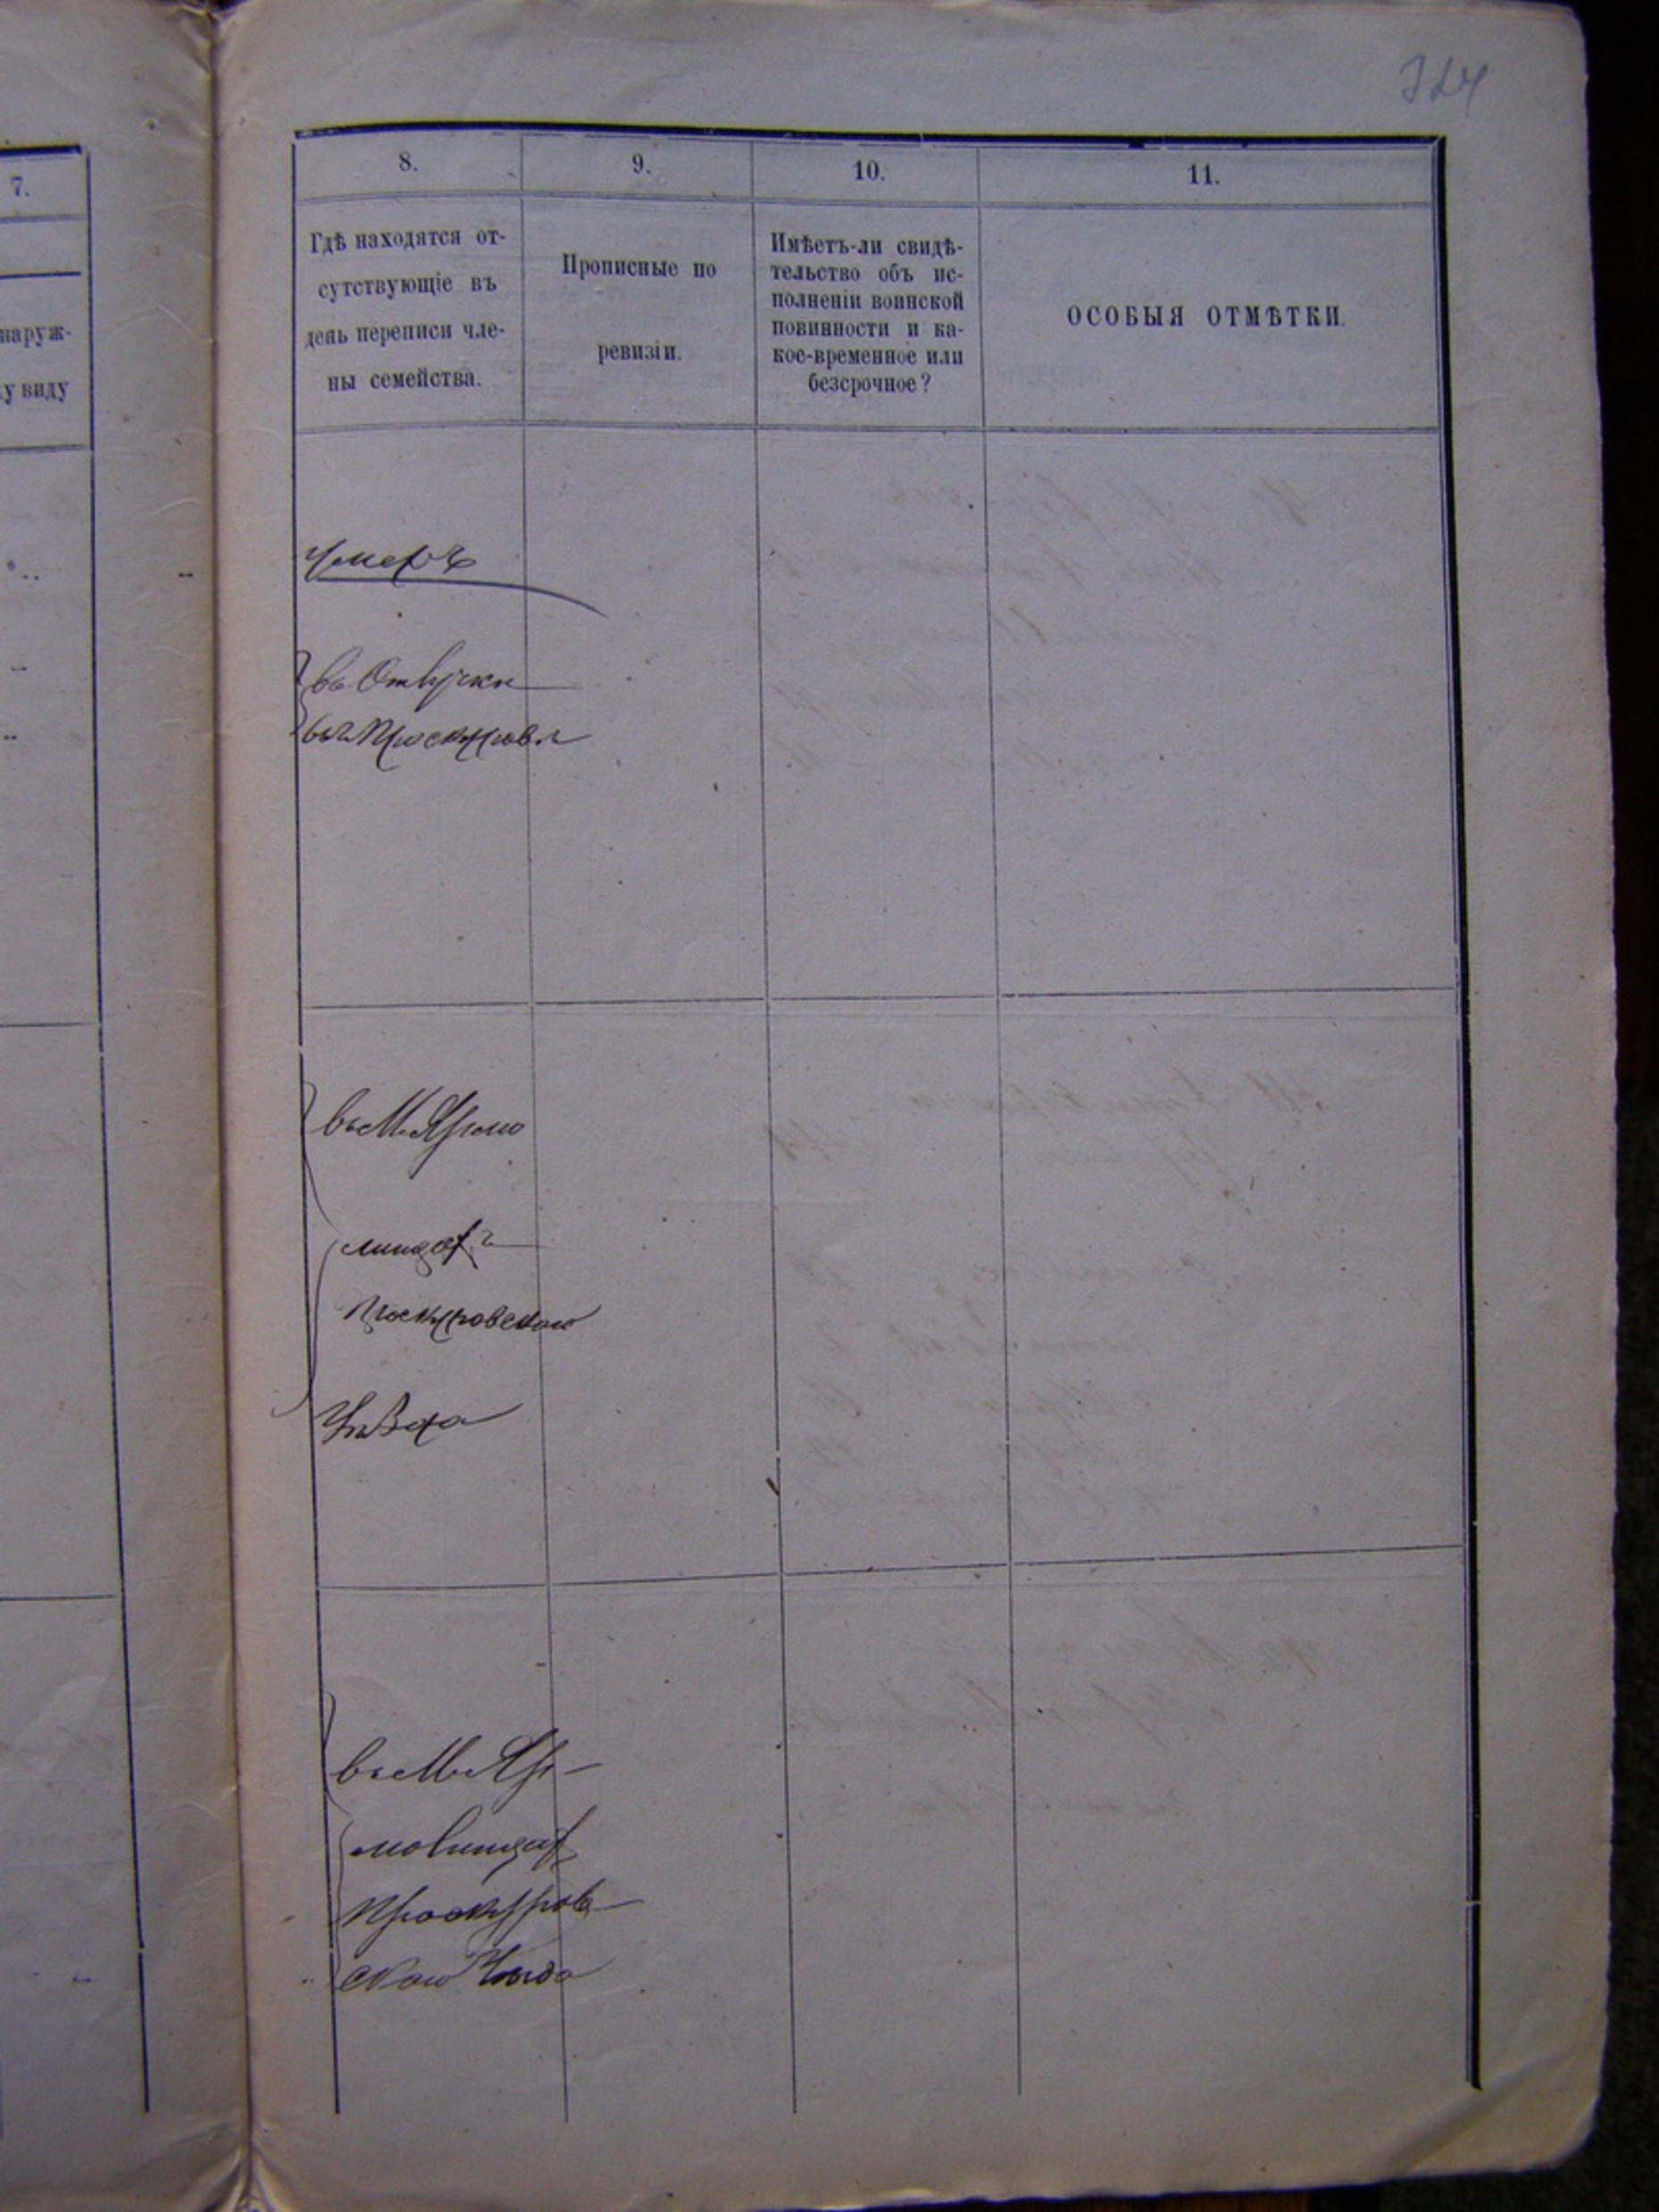 324
7.
наруж-
у виду
8.
9.
10.
11.
Гдѣ находятся от-
сутствующіе въ
день переписи чле-
ны семейства.
Прописные по
ревизіи.
Имѣетъ-ли свидѣ-
тельство объ ис-
полненіи воинской
повинности и ка-
кое-временное или
безсрочное?
ОСОБЫЯ ОТМѢТКИ.
умеръ
въ Отлучки
въ Проскуровѣ
въ М. Ярмо
линцахъ
Проскуровскаго
Уѣзда
въ М. Яр-
молинцах
Проскуров
скаго Уѣзда